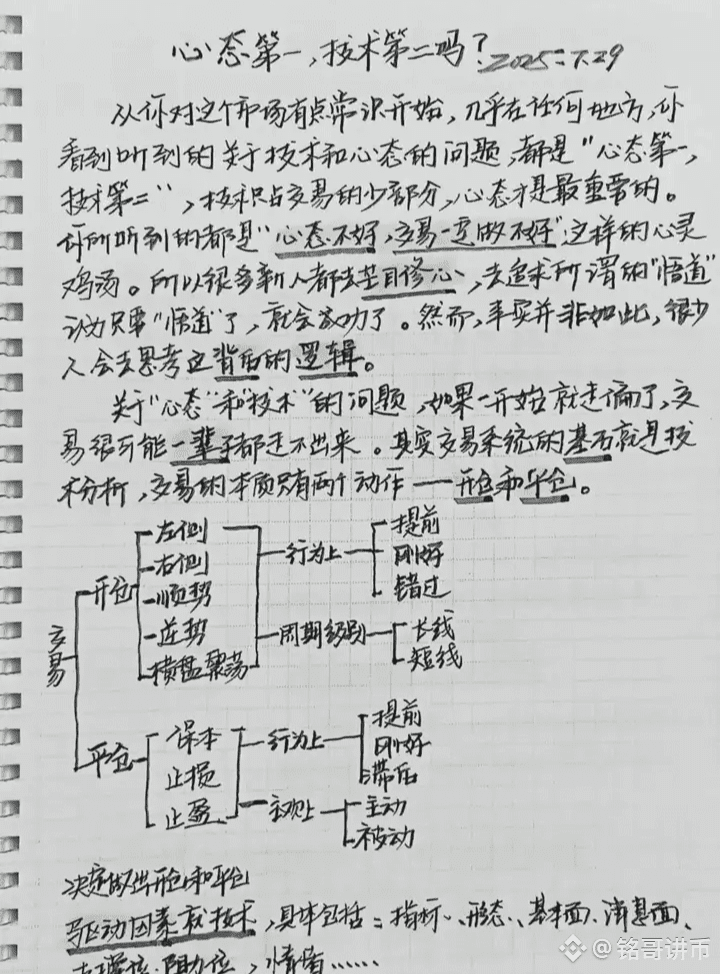 心态第一,技术第二吗? 2025=7.29
从你对这个市场有点常识开始,几乎在任何地方,你
看到听到的关于技术和心态的问题,都是"心态第一,
技术第二",技术只占交易的少部分,心态才是最重要的。
你所听到的都是"心态不好,交易一定做不好"这样的心灵
鸡汤。所以很多新人都去盲目修心,去追求所谓的"悟道"
认为只要"悟道"了,就会成功了。然而,事实并非如此,很少
人会去思考这背后的逻辑。
关于"心态"和"技术"的问题,如果一开始就走偏了,交
易很可能一辈子都走不出来。其实交易系统的基石就是技
术分析,交易的本质只有两个动作——开仓和平仓。
交易
开仓
左侧
右侧
顺势
逆势
横盘震荡
行为上
提前
刚好
错过
周期级别
长线
短线
平仓
保本
止损
止盈
行为上
提前
刚好
滞后
主观上
主动
被动
决定做出开仓和平仓
驱动因素就技术,具体包括:指标、形态、基本面、消息面、
阻力位,情绪……
@铭哥讲币